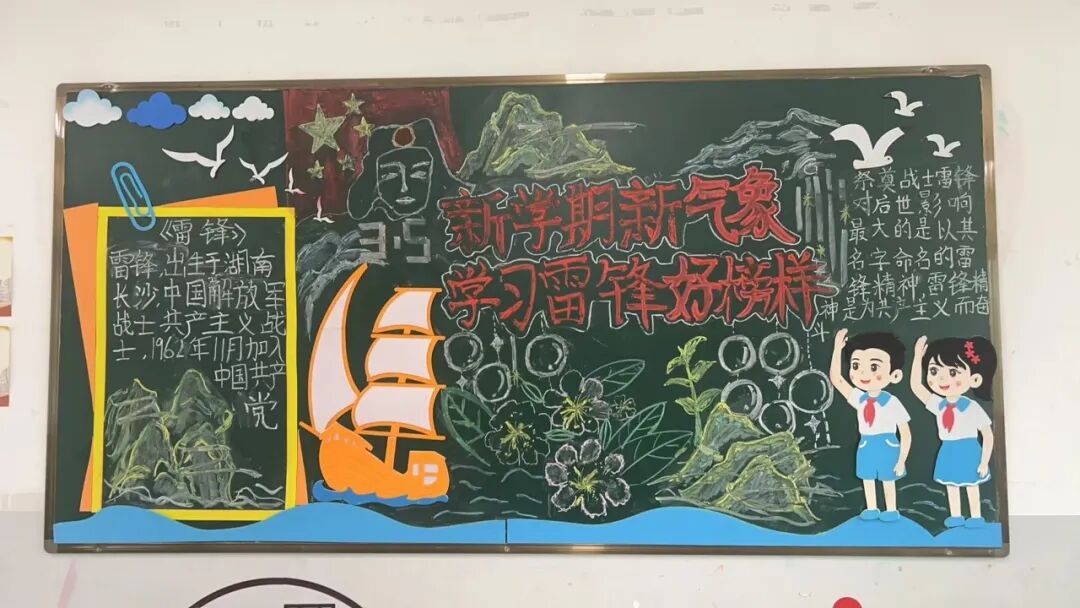 《雷锋》
雷锋,出生于湖南
长沙,中国解放军
战士,共产主义战
士,1962年11月加入
中国共产
党
3.5
新学期新气象
学习雷锋好榜样
祭奠战士雷锋
对后世影响
最大的是以其
名字命名的雷
锋精神,雷锋精
神是为共产主义而奋
斗